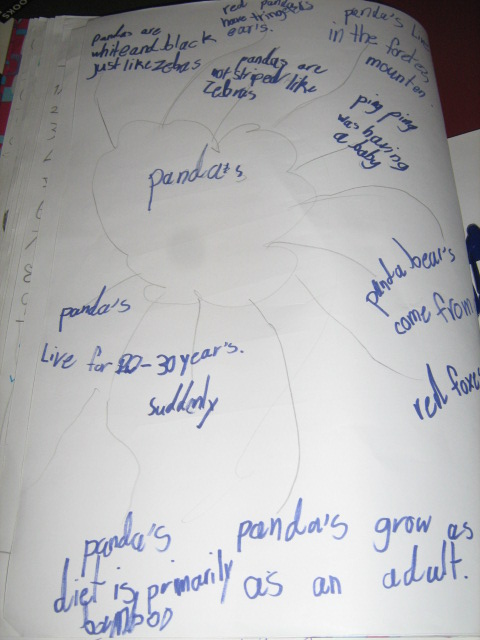 pandas are
white and black
just like zebras
red panda's
have triangels
ear's.
pandas are
not striped like
Zebras
panda's Live
in the
mounten.
ping ping
was having
a baby
panda's
panda bear's
come from
red foxes
panda's
Live for 20-30 year's.
suddenly
panda's
diet is primarily
bamboo
panda's grow as
as an adult.